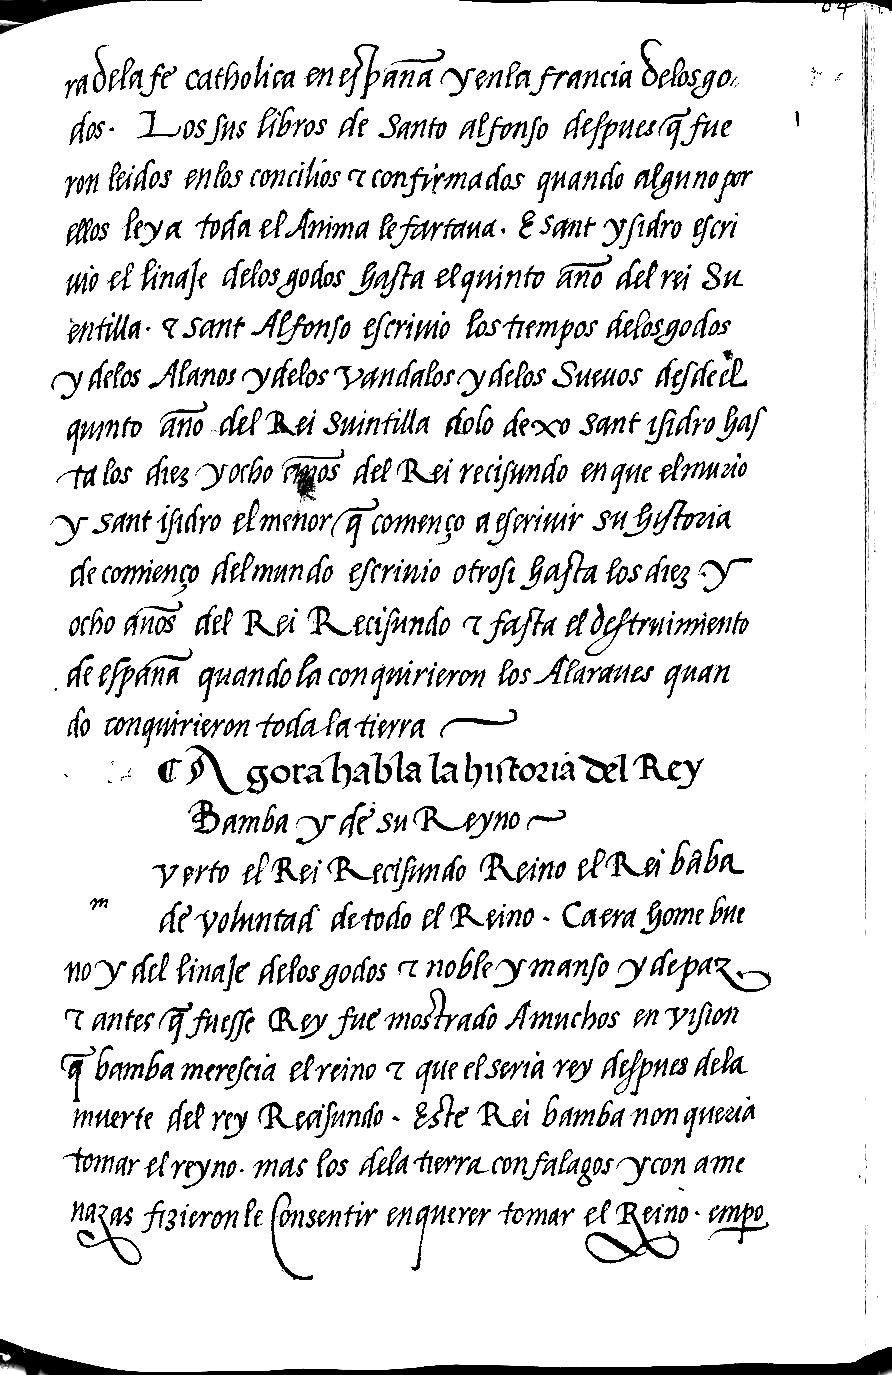 ra de la fe catholica en españa y en la francia delos go
dos. Los sus libros de santo alfonso despues q̃ fue
ron leidos enlos concilios τ confirmados quando alguno por
ellos leya toda el Anima le fartaua. E sant ysidro escri
uio el linaje delos godos hasta el quinto año del rei Su
entilla. τ sant Alfonso escriuio los tiempos delos godos
y delos Alanos y delos vandalos y delos Sueuos desde el
quinto año del Rei Suintilla dolo dexo sant isidro has
ta los diez y ocho años del Rei recisundo en que el murio
y sant isidro el menor q̃ començo a escriuir su historia
de comienço del mundo escriuio otrosi hasta los diez y
ocho años del Rei Recisundo τ fasta el destruimiento
de españa quando la conquirieron los Alaraues quan
do conquirieron toda la tierra
¶ Agora habla la historia del Rey
Bamba y de su Reyno
verto el Rei Recisundo Reino el Rei bãba
m de voluntad de todo el Reino. Ca era home bue
no y del linaje delos godos τ noble y manso y de paz
τ antes q̃ fuesse Rey fue mostrado A muchos en vision
q̃ bamba merescia el reino τ que el seria rey despues dela
muerte del rey Recisundo. Este Rei bamba non queria
tomar el reyno. mas los dela tierra con falagos y con ame
nazas fizieron le consentir en querer tomar el Reino. empo